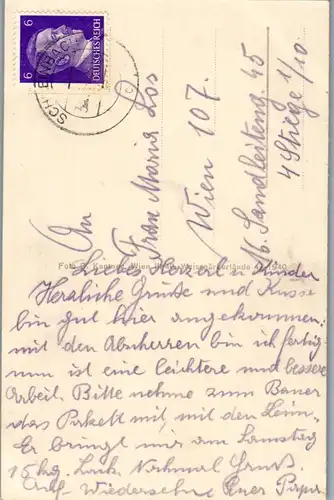 6 6
DEUTSCHES REICH
SCHEIBBACH
An
Frau Maria Los
Wien 107.
16. Sandleiteng. 45
4 Stiege 1/10
Foto Wien Weissgärberlände 1940
Liebes u Kinder
Herzliche Grüße und Küsse
bin gut hier angekommen,
mit den Absherren bin ich fertig
nun ist eine leichtere und bessere
Arbeit. Bitte nehme zum Bauer
das Paket mit, mit den Leim.
Er bringt mir am Samstag
15 kg. Nochmal Gruß.
Auf Wiedersehn Euer Papa